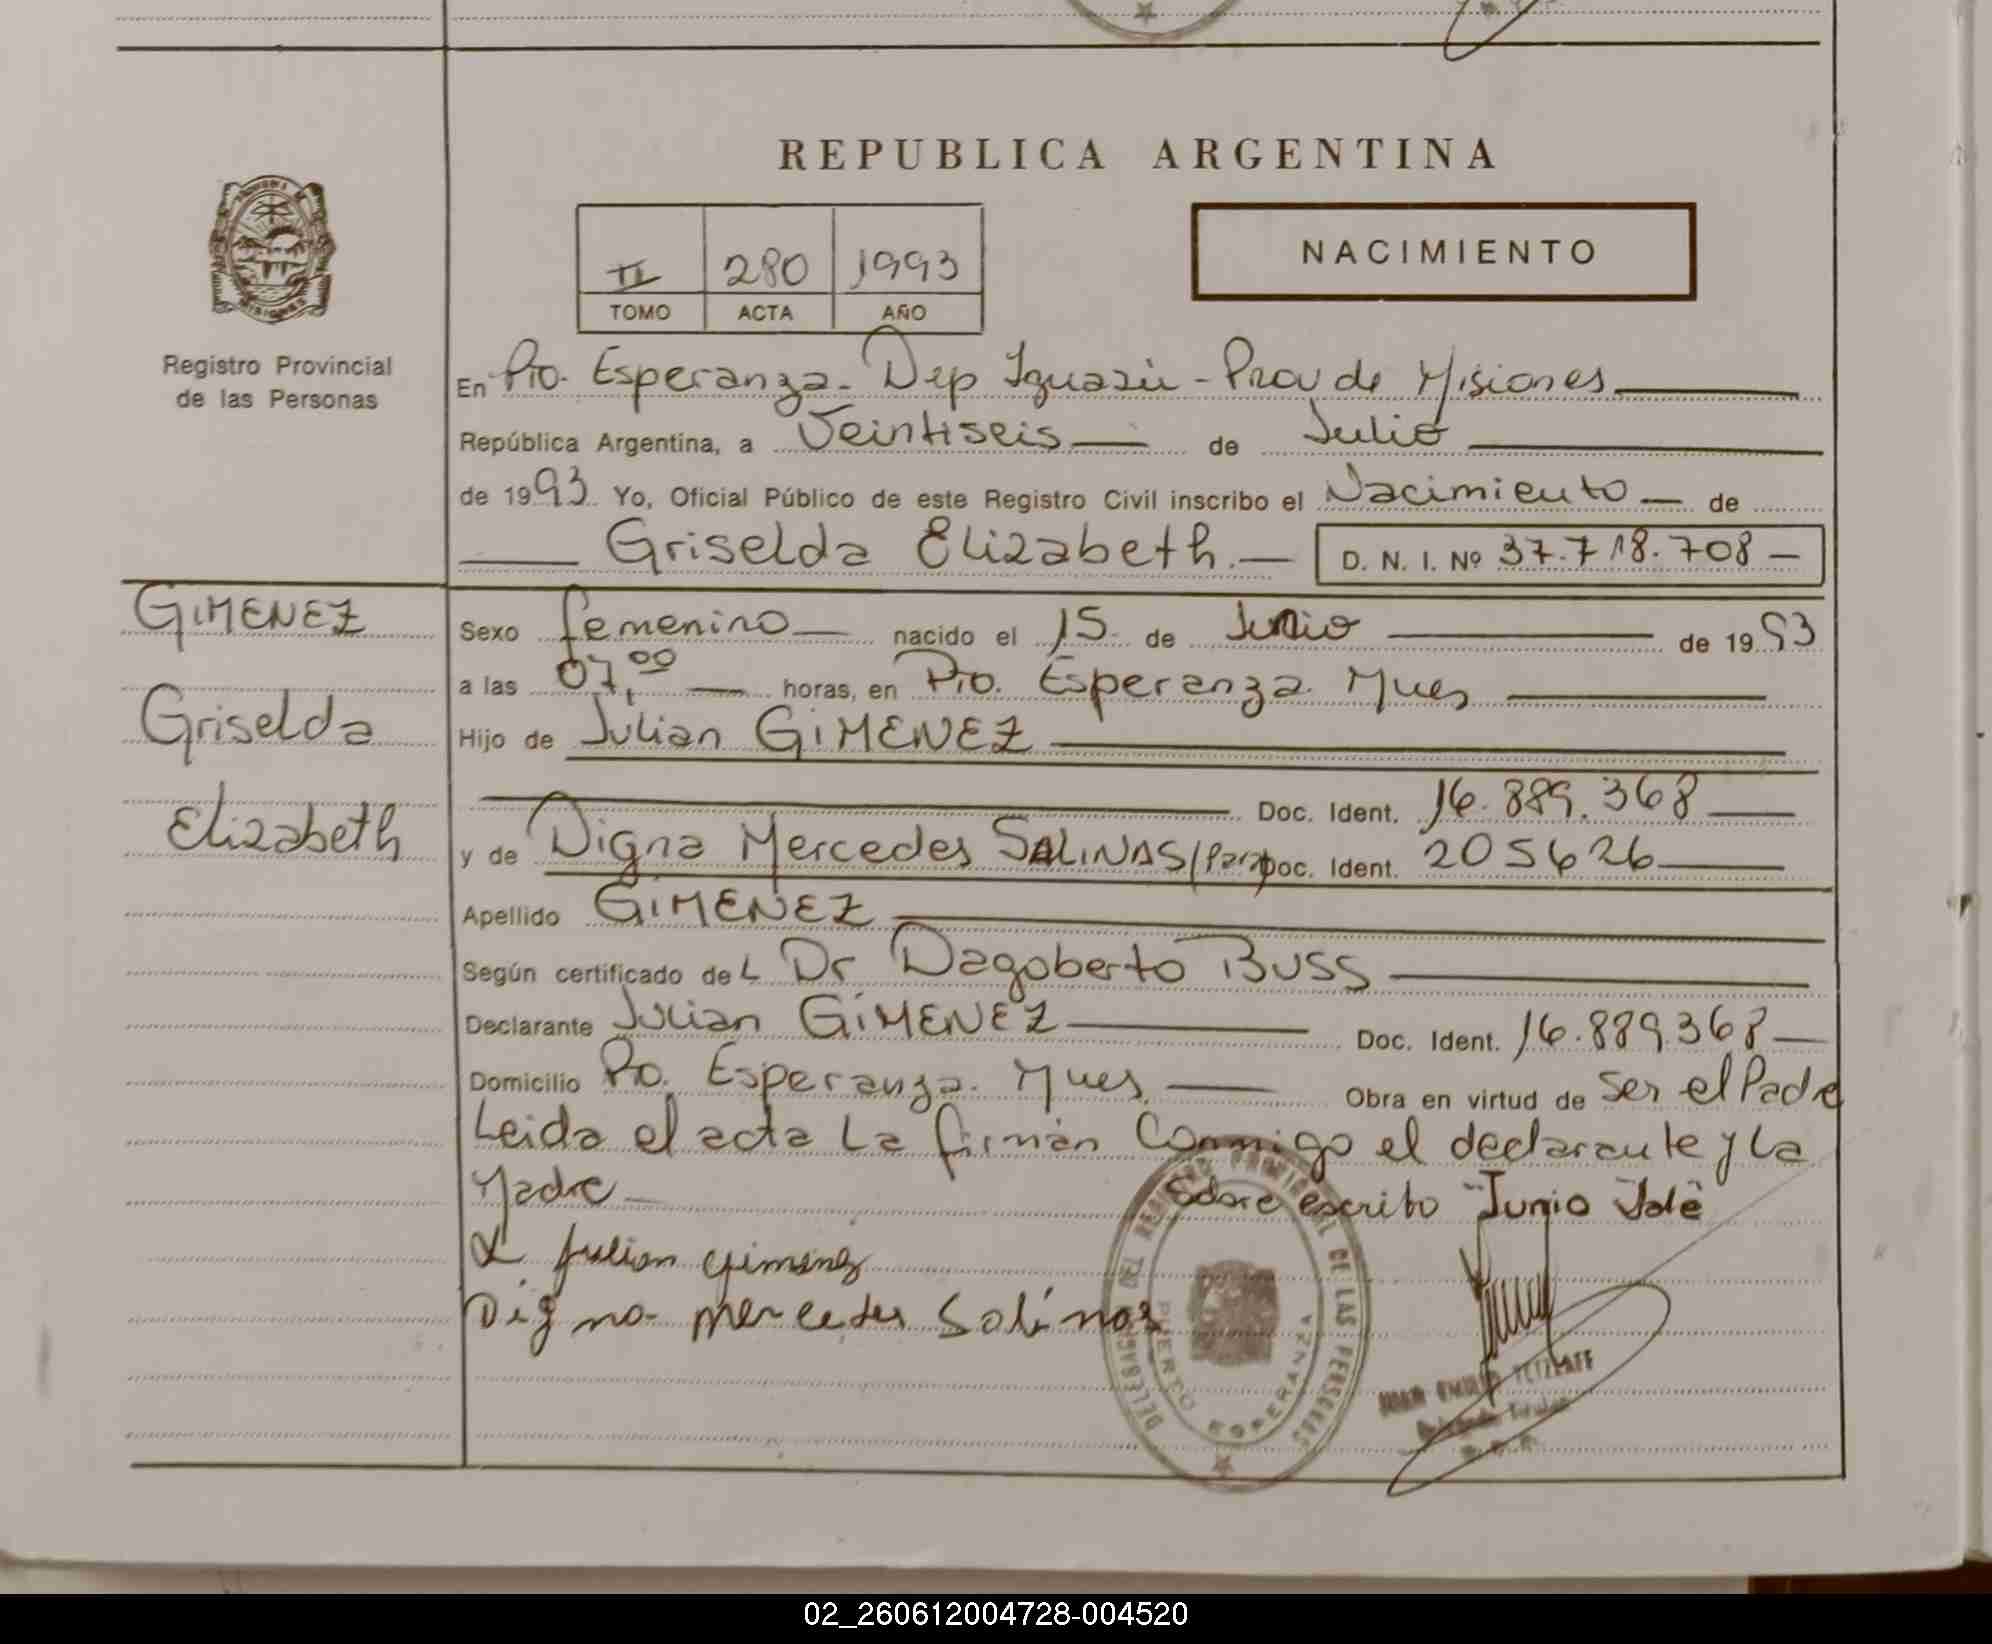 REPUBLICA ARGENTINA
II 280 1993
TOMO ACTA AÑO
NACIMIENTO
Registro Provincial
de las Personas
En Pto. Esperanza - Dep Iguazú - Prov de Misiones
República Argentina, a Veintiseis de Julio
de 1993 Yo, Oficial Público de este Registro Civil inscribo el Nacimiento de
Griselda Elizabeth. D. N. I. Nº 37.718.708
GIMENEZ
Griselda
Elizabeth
Sexo femenino nacido el 15 de Junio de 1993
a las 07,00 horas, en Pto. Esperanza Mnes
Hijo de Julian GIMENEZ
Doc. Ident. 16.889.368
y de Digna Mercedes SALINAS/ Doc. Ident. 205626
Apellido GIMENEZ
Según certificado del Dr Dagoberto BUSS
Declarante Julian GIMENEZ Doc. Ident. 16.889.368
Domicilio Pto. Esperanza. Mnes Obra en virtud de ser el Padre
Leida el acta La firman Conmigo el declarante y La
Madre
Sobre escrito "Junio" Vale
Julian Gimenez
Digna mercedes Salinas
DELEGACION DEL REGISTRO PROVINCIAL DE LAS PERSONAS
PUERTO ESPERANZA
Titular
02_260612004728-004520